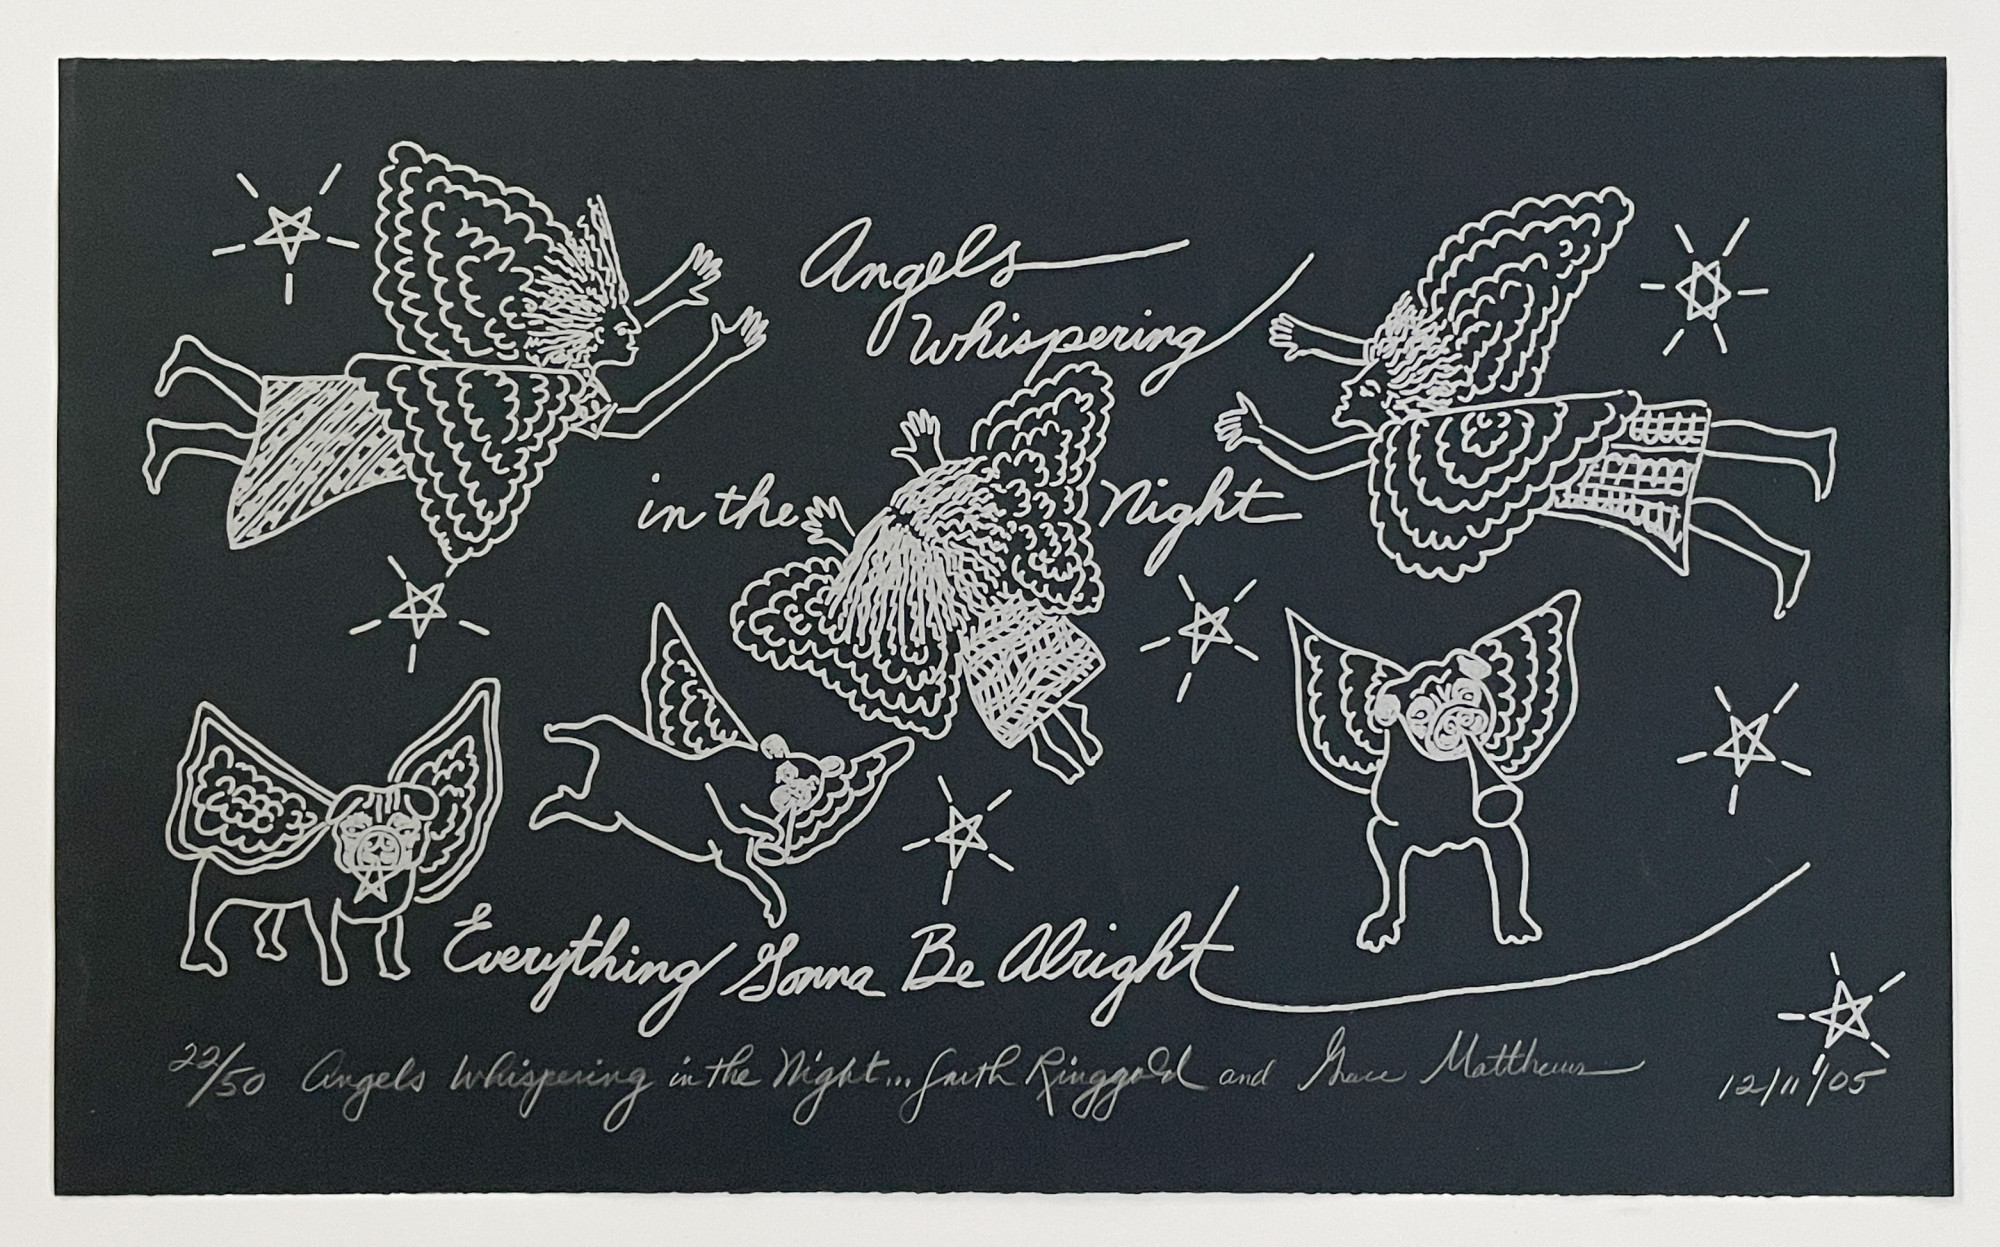 Angels
Whispering
in the Night
Everything Gonna Be Alright
22/50 Angels Whispering in the Night... Faith Ringgold and Grace Matthews 12/11/05